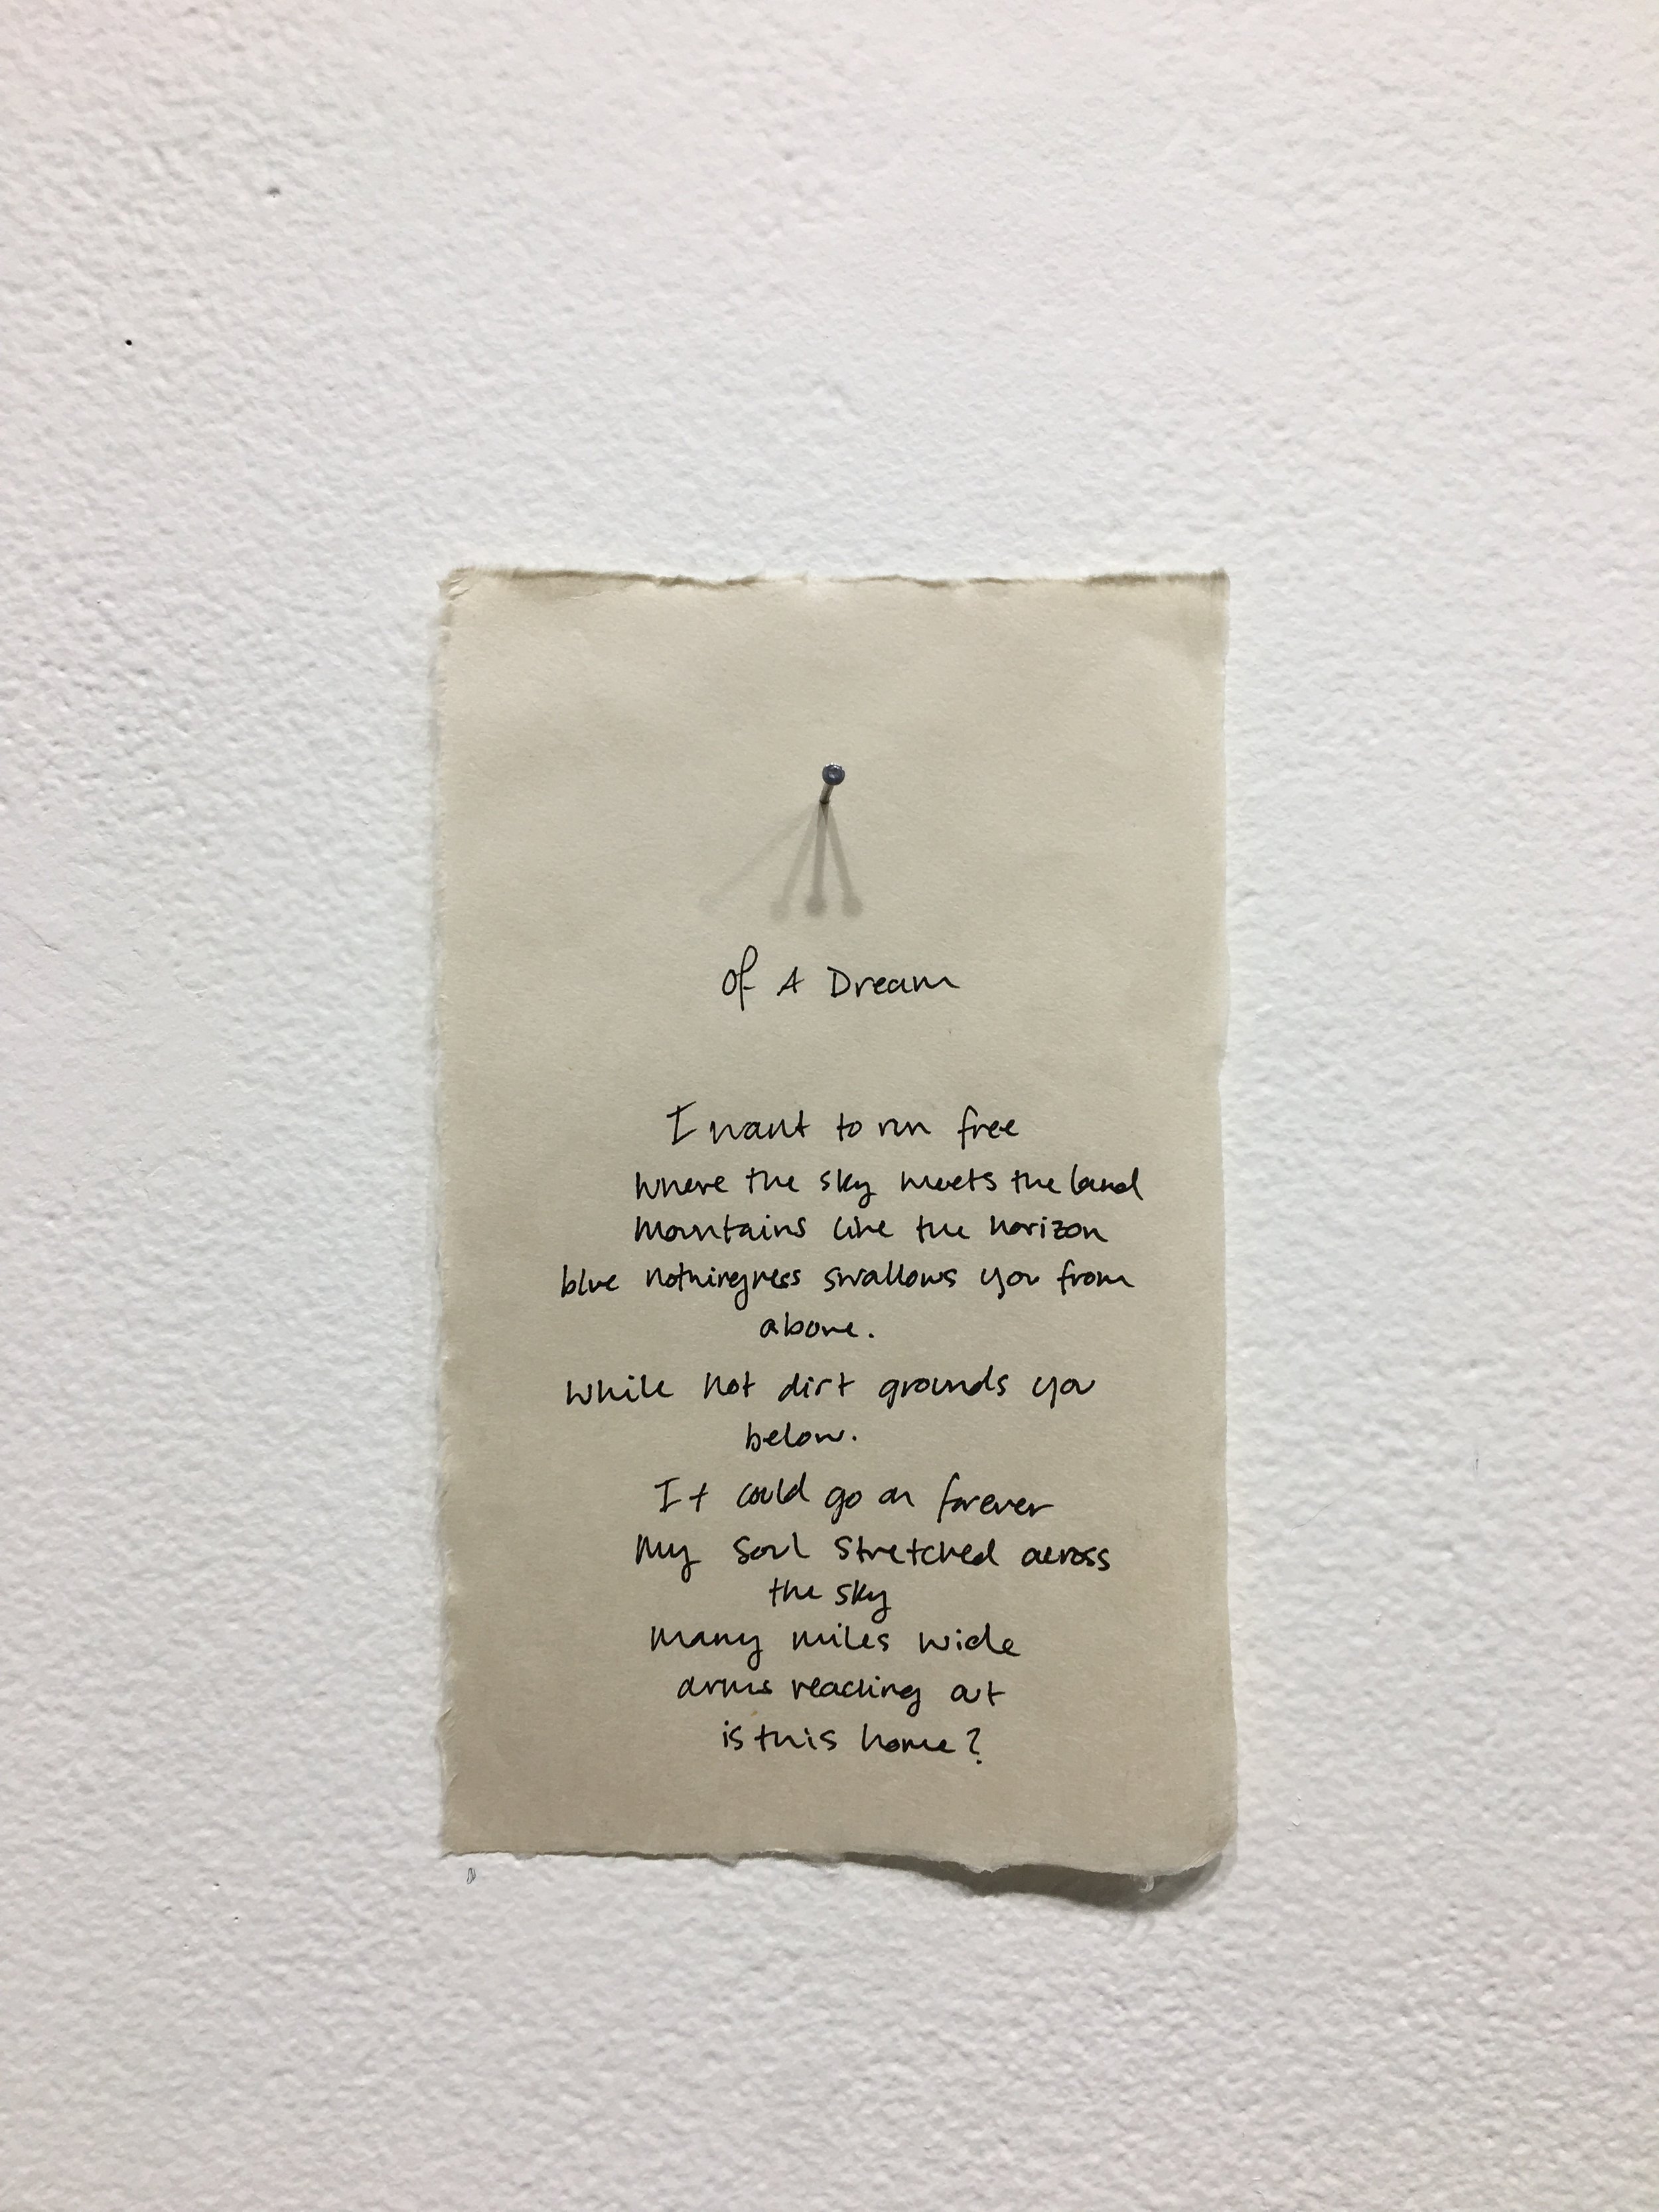 Of A Dream
I want to run free
Where the sky meets the land
Mountains line the horizon
blue nothingness swallows you from
above.
While hot dirt grounds you
below.
It could go on forever
My Soul Stretched across
the sky
Many miles wide
arms reaching out
is this home?